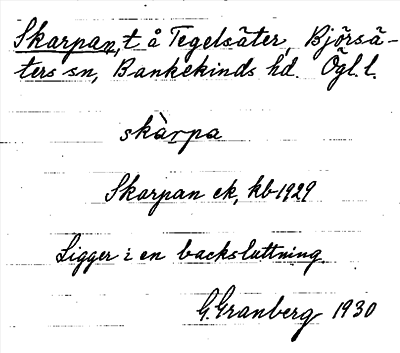 Skarpan, t å Tegelsäter, Björsä-
ters sn, Bankekinds hd. Ögl. l.
skàrpa
Skarpan ek, kb 1929
Ligger i en backsluttning
G. Granberg 1930